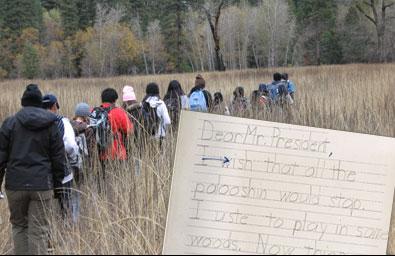 Dear Mr. President,
I wish that all the
palooshin would stop.
I uste to play in some
woods. Now